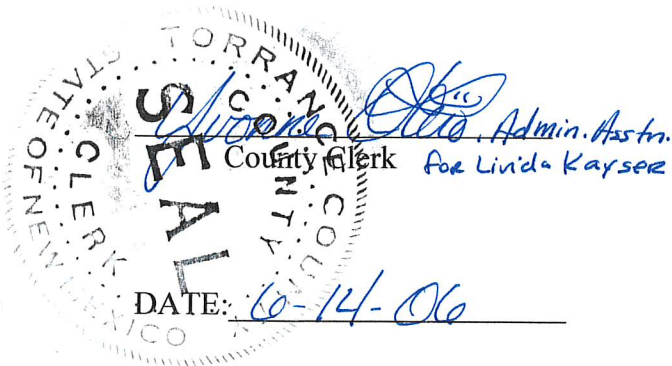 TORRANCE COUNTY
STATE OF NEW MEXICO
COUNTY CLERK
SEAL
Yvonne Otero, Admin. Asstn.
County Clerk for Linda Kayser
DATE: 6-14-06